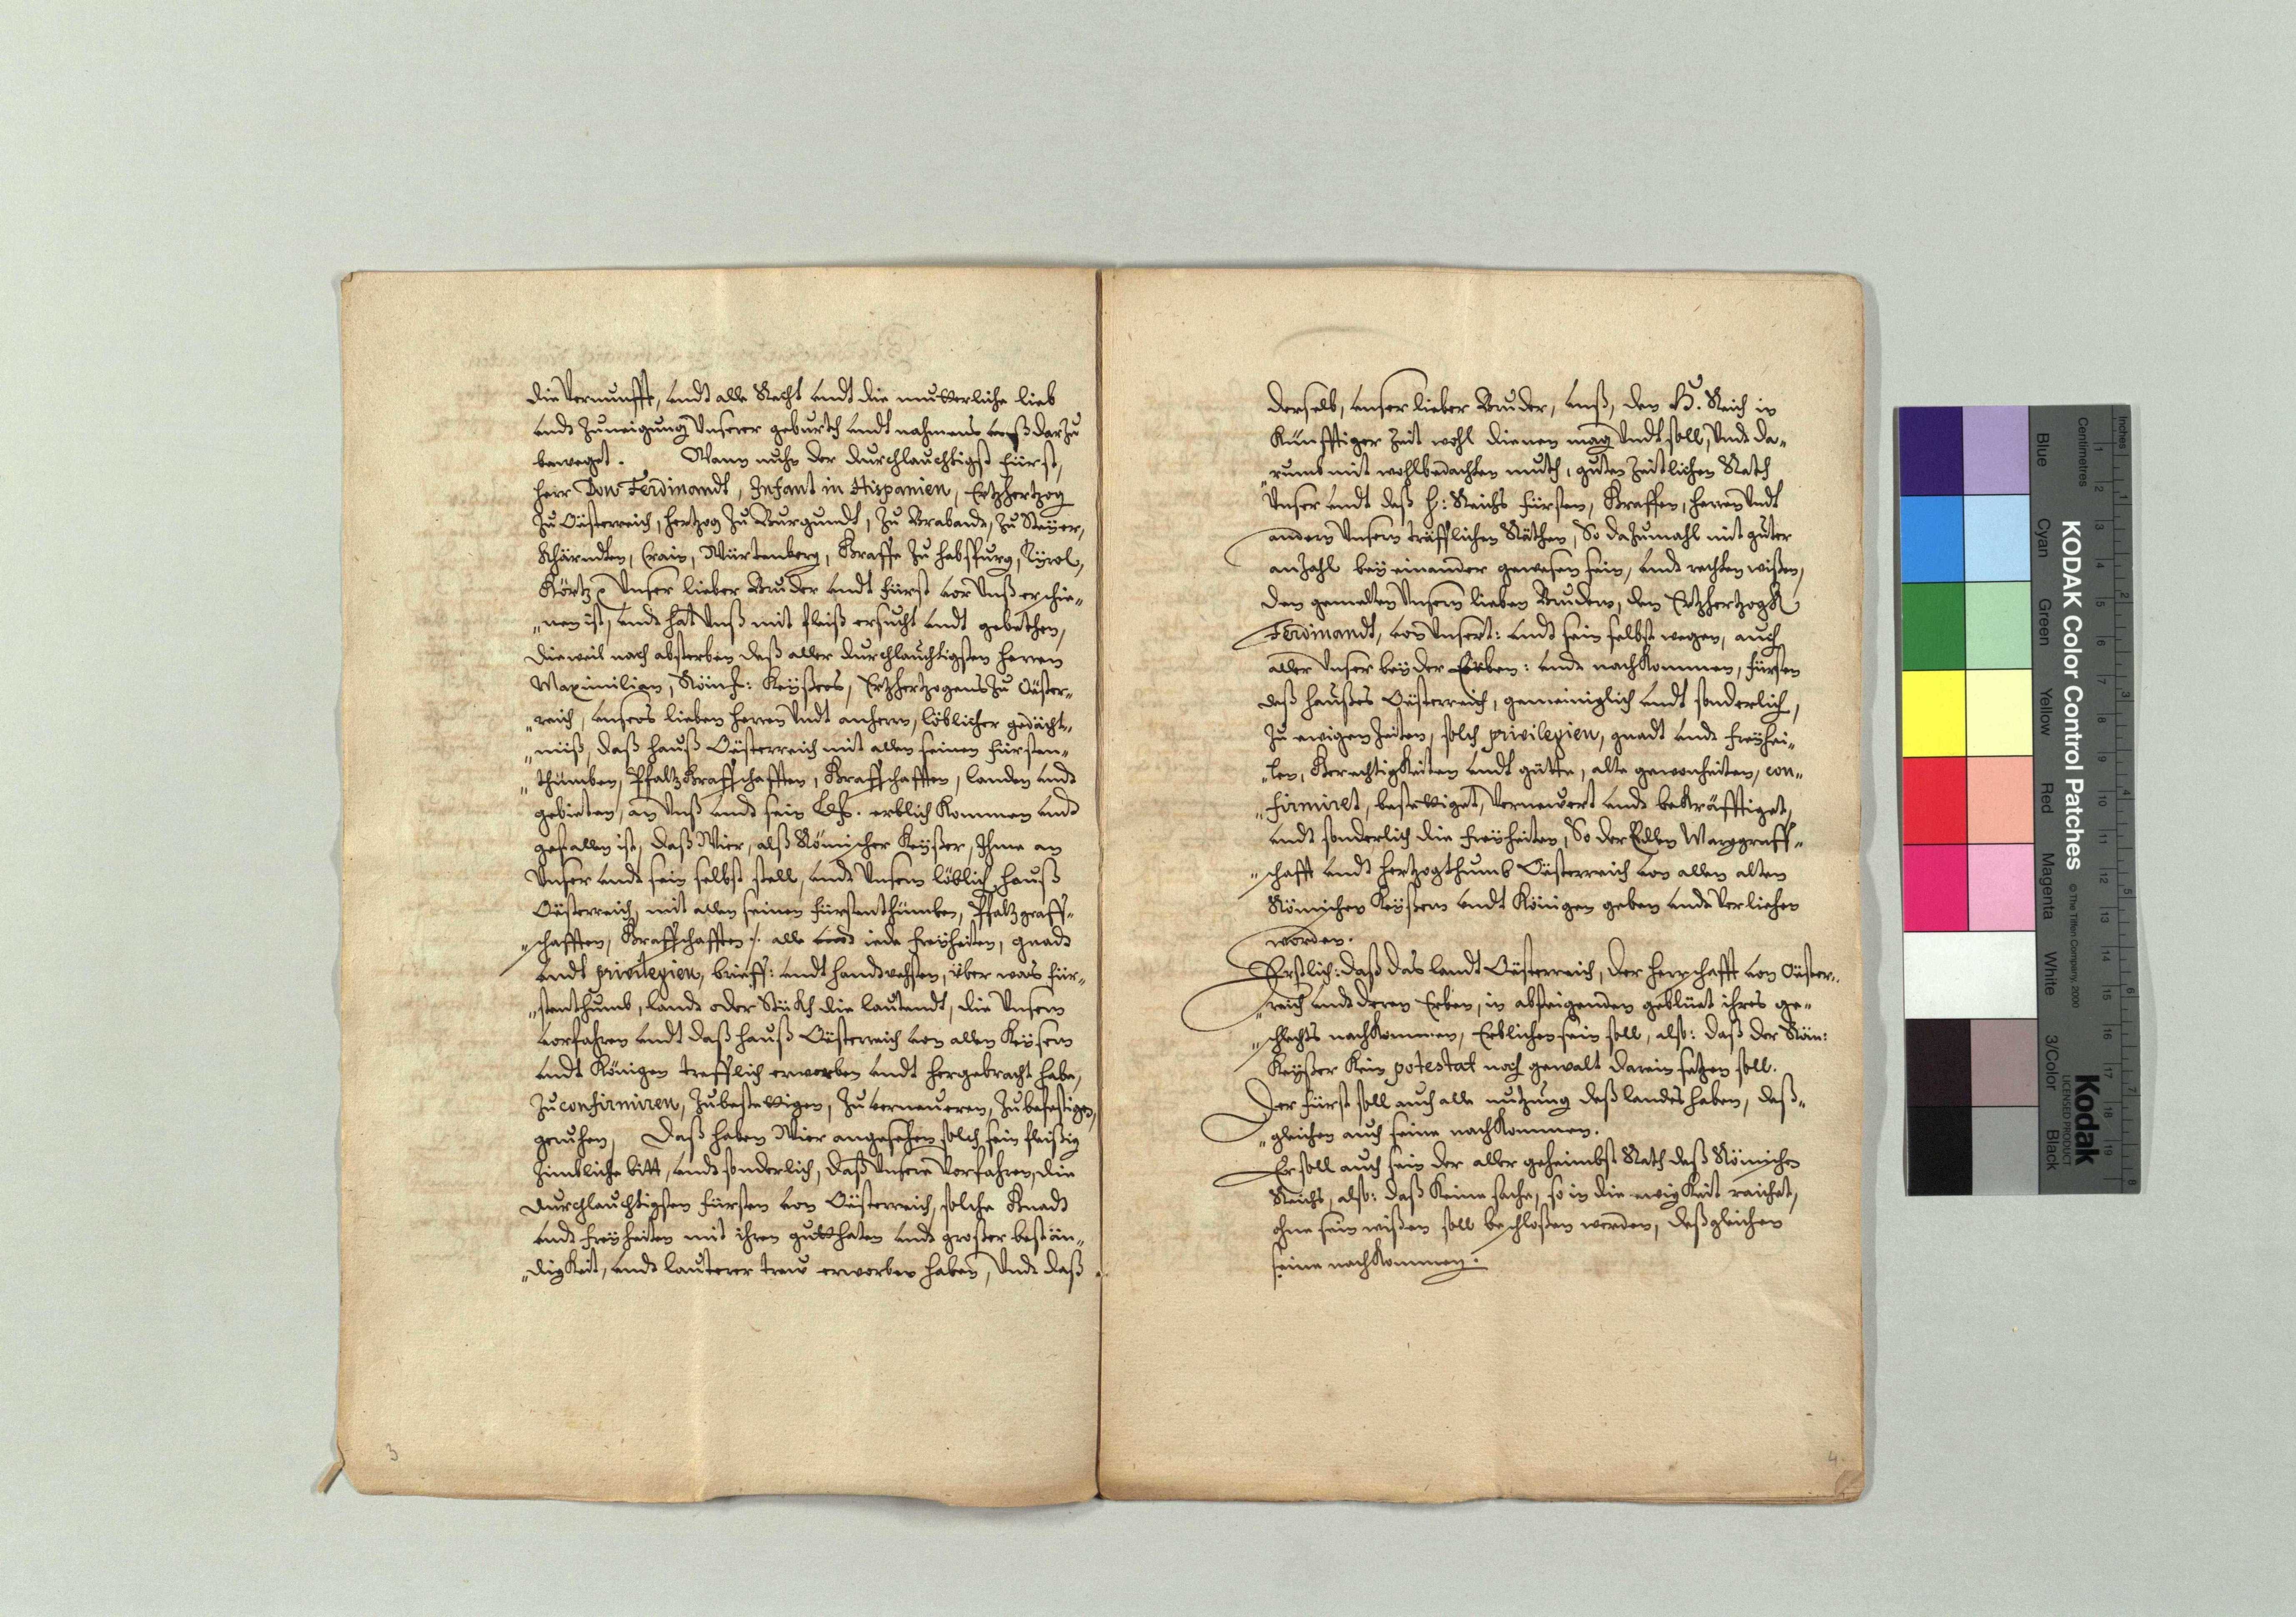 die Vernunfft, undt alle Recht undt die mutterliche lieb
undt Zuneigung Unserer geburth undt nahmens Unß darzu
beweget. Wann nuhn der durchlauchtigst fürst,
herr Don Ferdinandt, Infant in Hispanien, Ertzhertzog
zu Oästerreich, hertzog zu Burgundt, zu Brabandt, zu Steÿer,
Khärndten, Crain, Würtenberg, Graffe zu habspurg, Tÿrol,
Görtz Unser lieber Bruder undt fürst vor Unß erschie„
„nen ist, undt hat Unß mit fleiß ersucht undt gebethen,
dieweil nach absterben deß aller durchlauchtigsten herren
Maximilian, Römsch: Keÿßers, Ertzhertzogens zu Oäster„
„reich, unsers lieben herren undt anherrn, löblicher gedächt„
„nüß, daß hauß Oästerreich mit allen seinen fürsten„
„thümben, Pfaltzgraffschafften, Graffschafften, landen undt
gebieten, an Unß undt sein erblich kommen undt
gefallen ist, daß Wier, alß Römischer Keÿßer, Ihme an
Unser undt sein selbst stell, undt Unserm löblich hauß
Oästerreich, mit allen seinen fürstenthümben, Pfaltzgraff„
„schafften, Graffschafften :/: alle undt iede freÿheiten, gnadt
undt privilegien, brieff: undt handtvesten, über was für„
„stenthumb, landt oder Stükh die lautendt, die Unsern
Vorfahren undt daß hauß Oästerreich von allen Keÿsern
undt Königen trefflich erworben undt hergebracht habe,
zu confirmiren, zu bestettigen, zu verneueren, zu befestigen,
geruhen, Daß haben Wier angesehen solch sein fleißig
zimbliche bitt, undt sonderlich, daß Unsere Vorfahren, die
durchlauchtigsten fürsten von Oästerreich, solche Gnadt
undt freÿheiten mit ihren gutthaten undt großer bestän„
„digkeit, undt lauterer treuw erworben haben, Undt daß
3
derselb, unser lieber Bruder, unß, dem H. Reich in
künfftiger zeit wohl dienen mag Undt soll, Undt da„
„rumb mit wohlbedachten muth, guten zeitlichen Rath
Unser undt deß H: Reichs fürsten, Graffen, herren Undt
andern Unsern träfflichen Räthen, So dazumahl mit guter
anzahl beÿ einander gewesen sein, undt rechten wißen,
den gemelten Unserm lieben Brudern, dem Ertzhertzog
Ferdinandt, von Unsert: undt sein selbst wegen, auch
aller Unser beÿder Erben: undt nachkommen, fürsten
deß haußes Oästerreich, gemeiniglich undt sonderlich,
zu ewigen zeiten, solch privilegien, gnadt undt freÿhei„
„ten, Gerechtigkeiten undt gütte, alte gewonheiten, con„
„firmiret, bestettiget, Vernewert undt bekräfftiget,
undt sonderlich die freÿheiten, So der Edlen Marggraff„
„schafft undt hertzogthumb Oästerreich von allen alten
Römischen Keÿßern undt Königen geben undt Verliehen
worden.
Erstlich: daß das landt Oästerreich, der herrschafft von Oäster„
„reich undt deren Erben, in absteigenden geblüet ihres ge„
„schlechts nachkommen, Erblichen sein soll, also: daß der Röm:
Keÿßer kein potestat noch gewalt darein setzen soll.
Der fürst soll auch alle nutzung deß landes haben, deß„
„gleichen auch seine nachkommen.
Er soll auch sein der aller geheimbst Rath deß Römischen
Reichs, also: daß keine sache, so in die ewigkeit raichet,
ohne sein wißen soll beschloßen werden, deßgleichen
seine nachkommen.
4
Inches
Centimetres
KODAK Color Control Patches
© The Tiffen Company, 2000
Kodak
LICENSED PRODUCT
Blue
Cyan
Green
Yellow
Red
Magenta
White
3/Color
Black